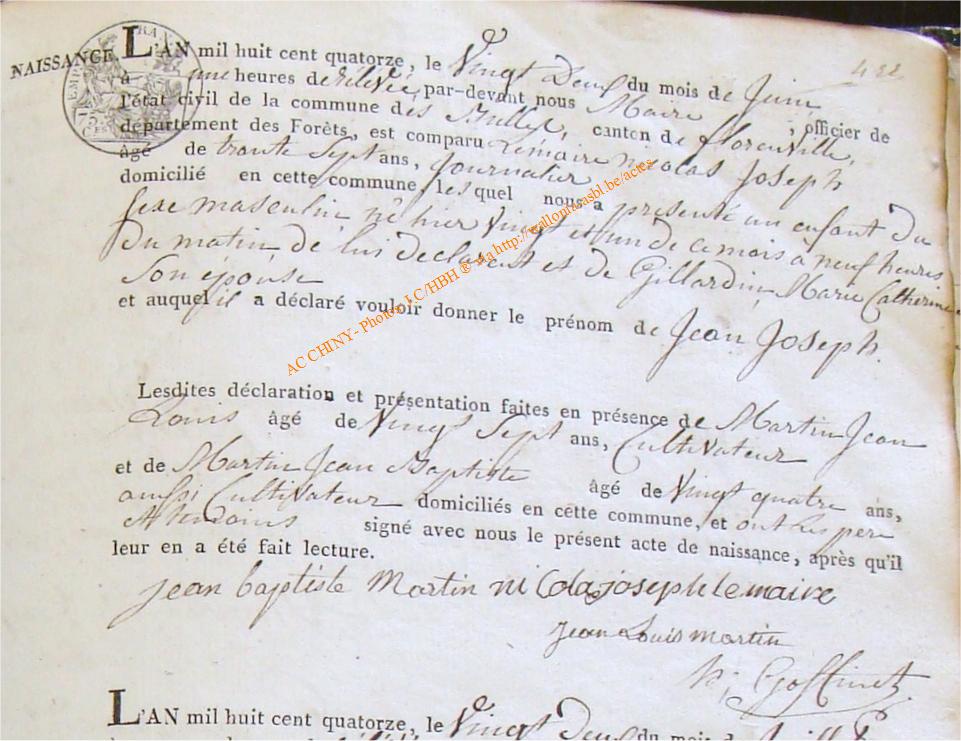 NAISSANCE
L'AN mil huit cent quatorze, le Vingt Deux du mois de Juin
à une heures de relevée, par-devant nous Maire, officier de
l'état civil de la commune des Bulles, canton de florenville,
département des Forêts, est comparu Lemaire nicolas Joseph
âgé de trante Sept ans, Journalier
domicilié en cette commune, lesquel nous a présenté un enfant du
sexe masculin né hier vingt et un de ce mois à neuf heures
du matin, de lui declarant et de Gillardin, Marie Catherine
Son épouse
et auquel il a déclaré vouloir donner le prénom de Jean Joseph.
AC CHINY - Photos LC/HBH ® via http://wallonia.asbl.be/actes
Lesdites déclaration et présentation faites en présence de Martin Jean
Louis âgé de Vingt Sept ans, Cultivateur
et de Martin Jean Baptiste âgé de Vingt quatre ans,
aussi Cultivateur domiciliés en cette commune, et ont les pere
signé avec nous le présent acte de naissance, après qu'il
leur en a été fait lecture.
jean baptiste Martin nicolas joseph le maire
jean Louis martin
Goffinet
L'AN mil huit cent quatorze, le Vingt Deux du mois de